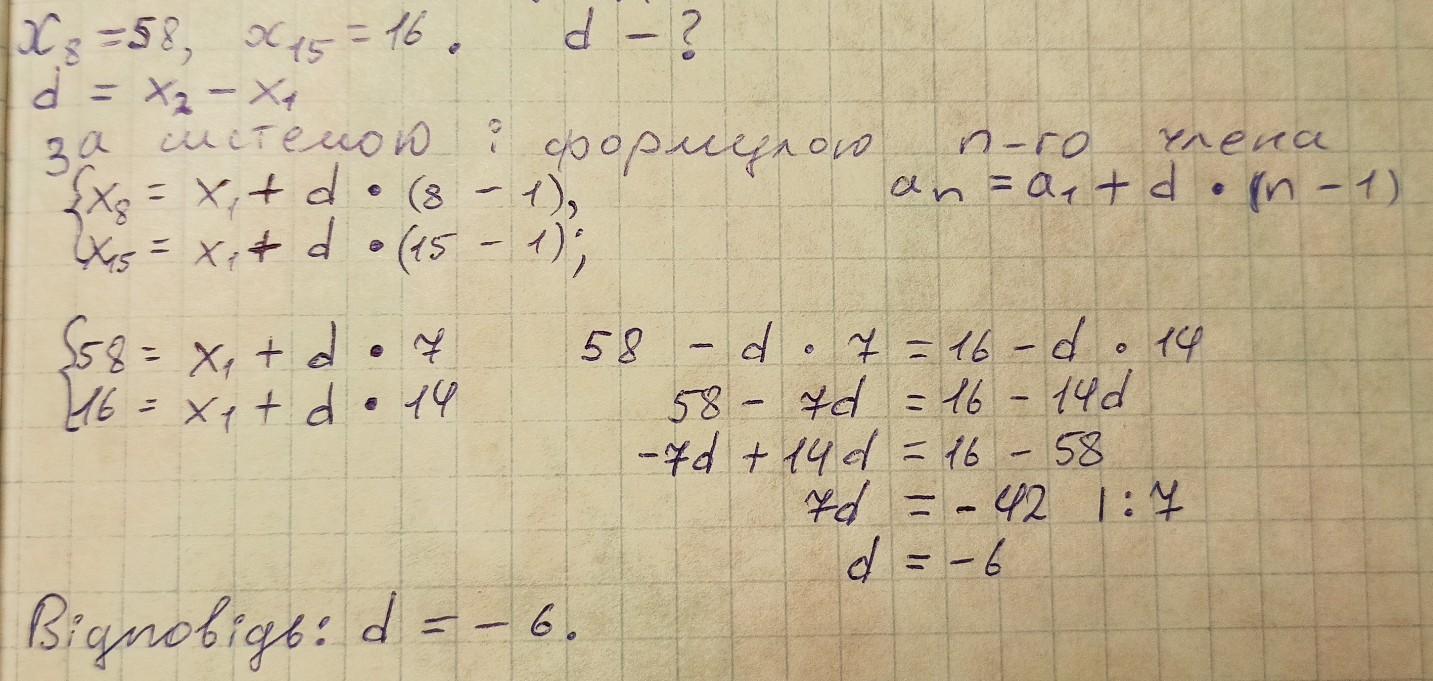 x₈ = 58, x₁₅ = 16. d - ?
d = x₂ - x₁
За системою і формулою n-го члена
{x₈ = x₁ + d • (8 - 1), aₙ = a₁ + d • (n - 1)
{x₁₅ = x₁ + d • (15 - 1);
{58 = x₁ + d • 7 58 - d • 7 = 16 - d • 14
{16 = x₁ + d • 14 58 - 7d = 16 - 14d
-7d + 14d = 16 - 58
7d = - 42 | : 7
d = - 6
Відповідь: d = - 6.